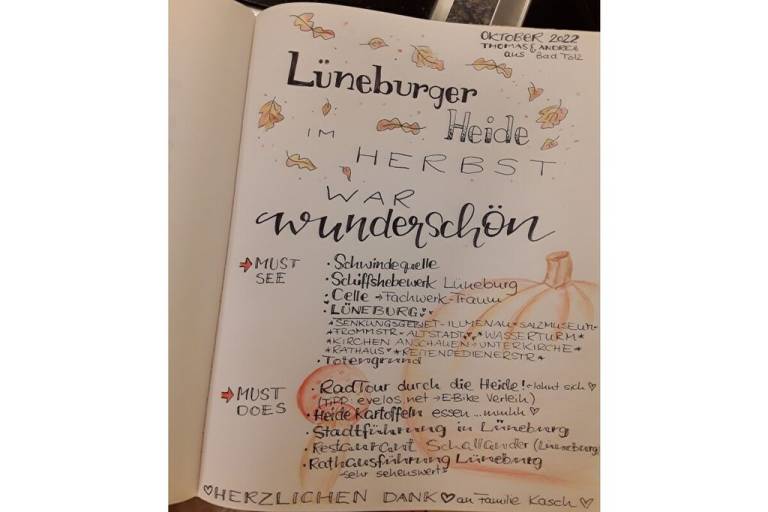 OKTOBER 2022
THOMAS & ANDREA
aus Bad Tölz
Lüneburger
Heide
IM
HERBST
WAR
wunderschön
MUST
SEE
· Schwindequelle
· Schiffshebewerk Lüneburg
· Celle → Fachwerk-Traum
· LÜNEBURG
*SENKUNGSGEBIET-ILLMENAU*SALZMUSEUM*
*FROMMSTR*ALTSTADT *WASSERTURM*
*KIRCHEN ANSCHAUEN*UNTERKIRCHE*
*RATHAUS*REITENDEDIENERSTR*
· Totengrund
MUST
DOES
· RadTour durch die Heide! lohnt sich ♡
(TIPP: evelos.net → E-Bike Verleih)
· Heide Kartoffeln essen ... mmhh ♡
· Stadtführung in Lüneburg
· Restaurant Schallander (Lüneburg)
· Rathausführung Lüneburg
-sehr sehenswert-
♡ HERZLICHEN DANK ♡ an Familie Kasch ♡